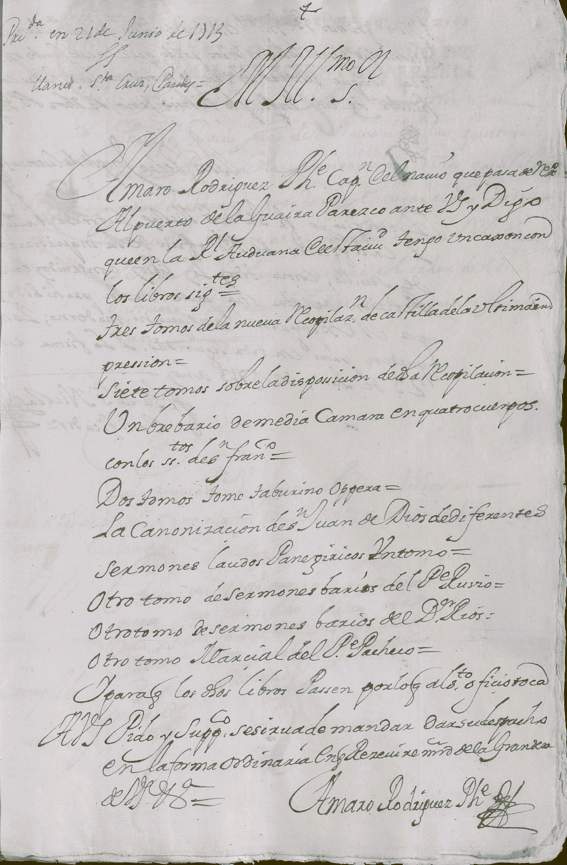 en 21 de Junio de 1713
M. Ill.mo S.
Amaro Rodriguez Phe. Cap.n del navio que pasa de
Al puerto de la Guaira Parezco ante VS y Digo
que en la Rl Aduana tengo un caxon con
los libros sig.tes =
tres tomos de la nueva Recopilaz.n de castilla de la ultima in
pression =
siete tomos sobre la disposicion de la Recopilacion =
Un brebario de media Camara en quatro cuerpos.
con los ss.tos de sn fran.co =
Dos tomos tomo taburino Oppera =
La Canonizacion de sn Juan de Dios de diferentes
sermones laudos Panegiricos Untomo =
Otro tomo de sermones barios del Pe Ruvio =
Otro tomo de sermones barios del D.n Rios =
Otro tomo Marcial del Pe Pacheco =
Y para q los dhos libros Passen por lo q al s.to oficio toca
A VS Pido y Supp.co se sirva de mandar dar su despacho
en la forma ordinaria en q Rezevire mrd de la Grandeza
de VS =
Amaro Rodriguez Phe